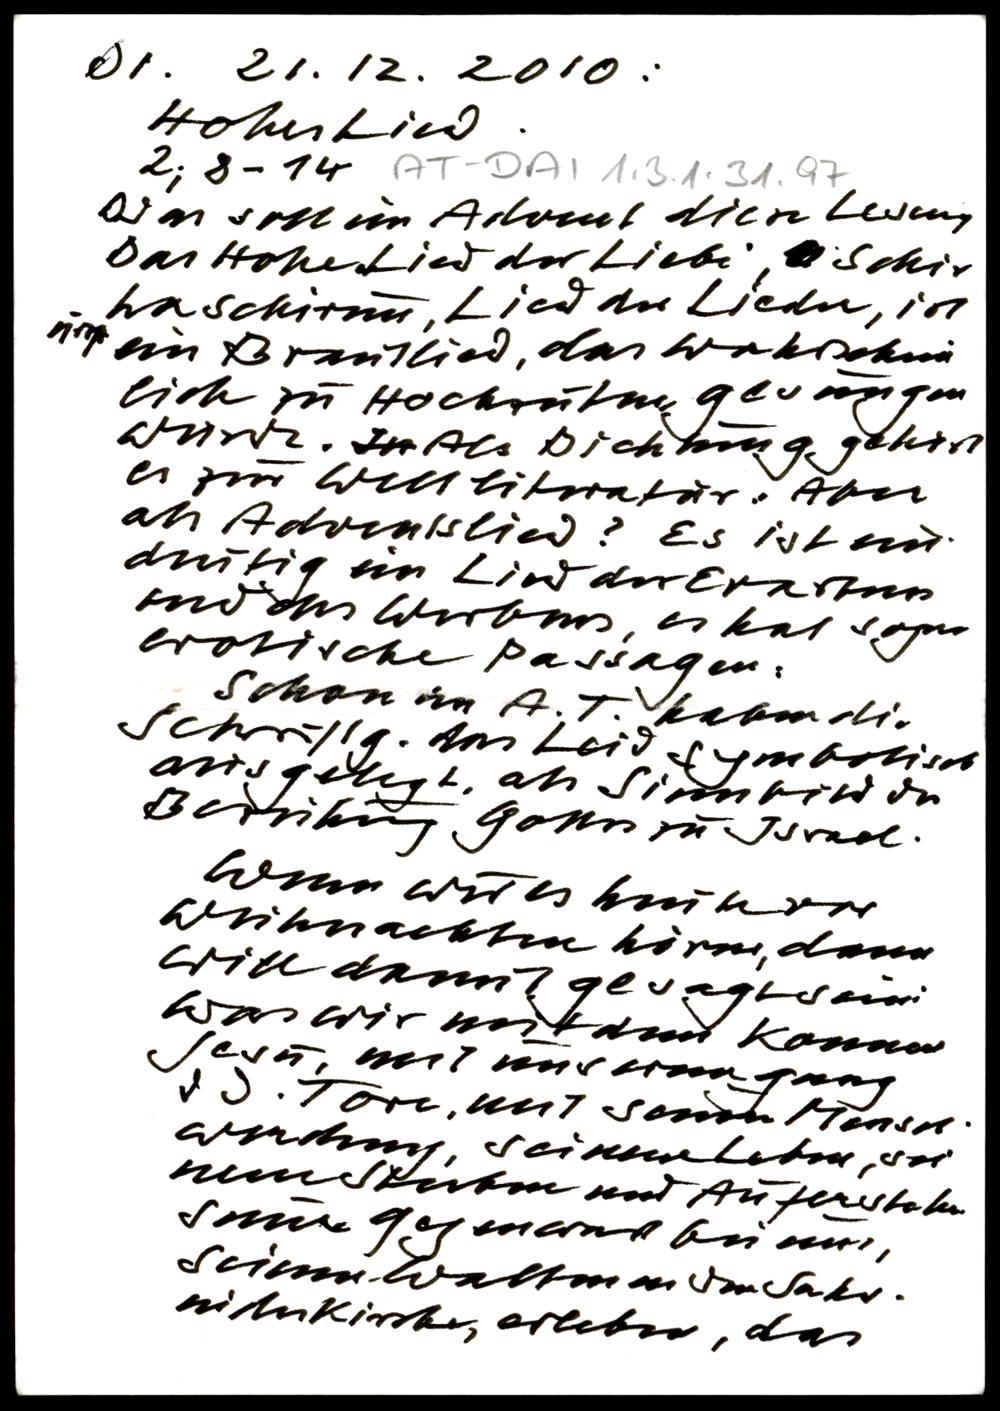 Di. 21.12.2010:
Hohes Lied.
2; 8-14 AT-DAI 1.3.1.31.97
Was soll im Advent diese Lesung
Das Hohe Lied der Liebe, Schir
ha schirim, Lied der Lieder, ist
ein Brautlied, das wahrschein
lich zu Hochzeiten gesungen
wurde. Als Dichtung gehört
es zur Weltliteratur. Aber
als Adventslied? Es ist ein-
deutig ein Lied der Erwartung
und des Werbens, es hat sogar
erotische Passagen.
Schon im A.T. haben die
Schriftg. das Lied symbolisch
ausgelegt, als Sinnbild der
Beziehung Gottes zu Israel.
Wenn wir es heute vor
Weihnachten hören, dann
will damit gesagt sein:
was wir mit dem Kommen
Jesu, mit
Tore, mit seiner Mensch-
werdung, seinem Leben, sei
nem Sterben und Auferstehen
seine Gegenwart bei uns,
seinem Walten in den Sakr.
in der Kirche, erleben, das